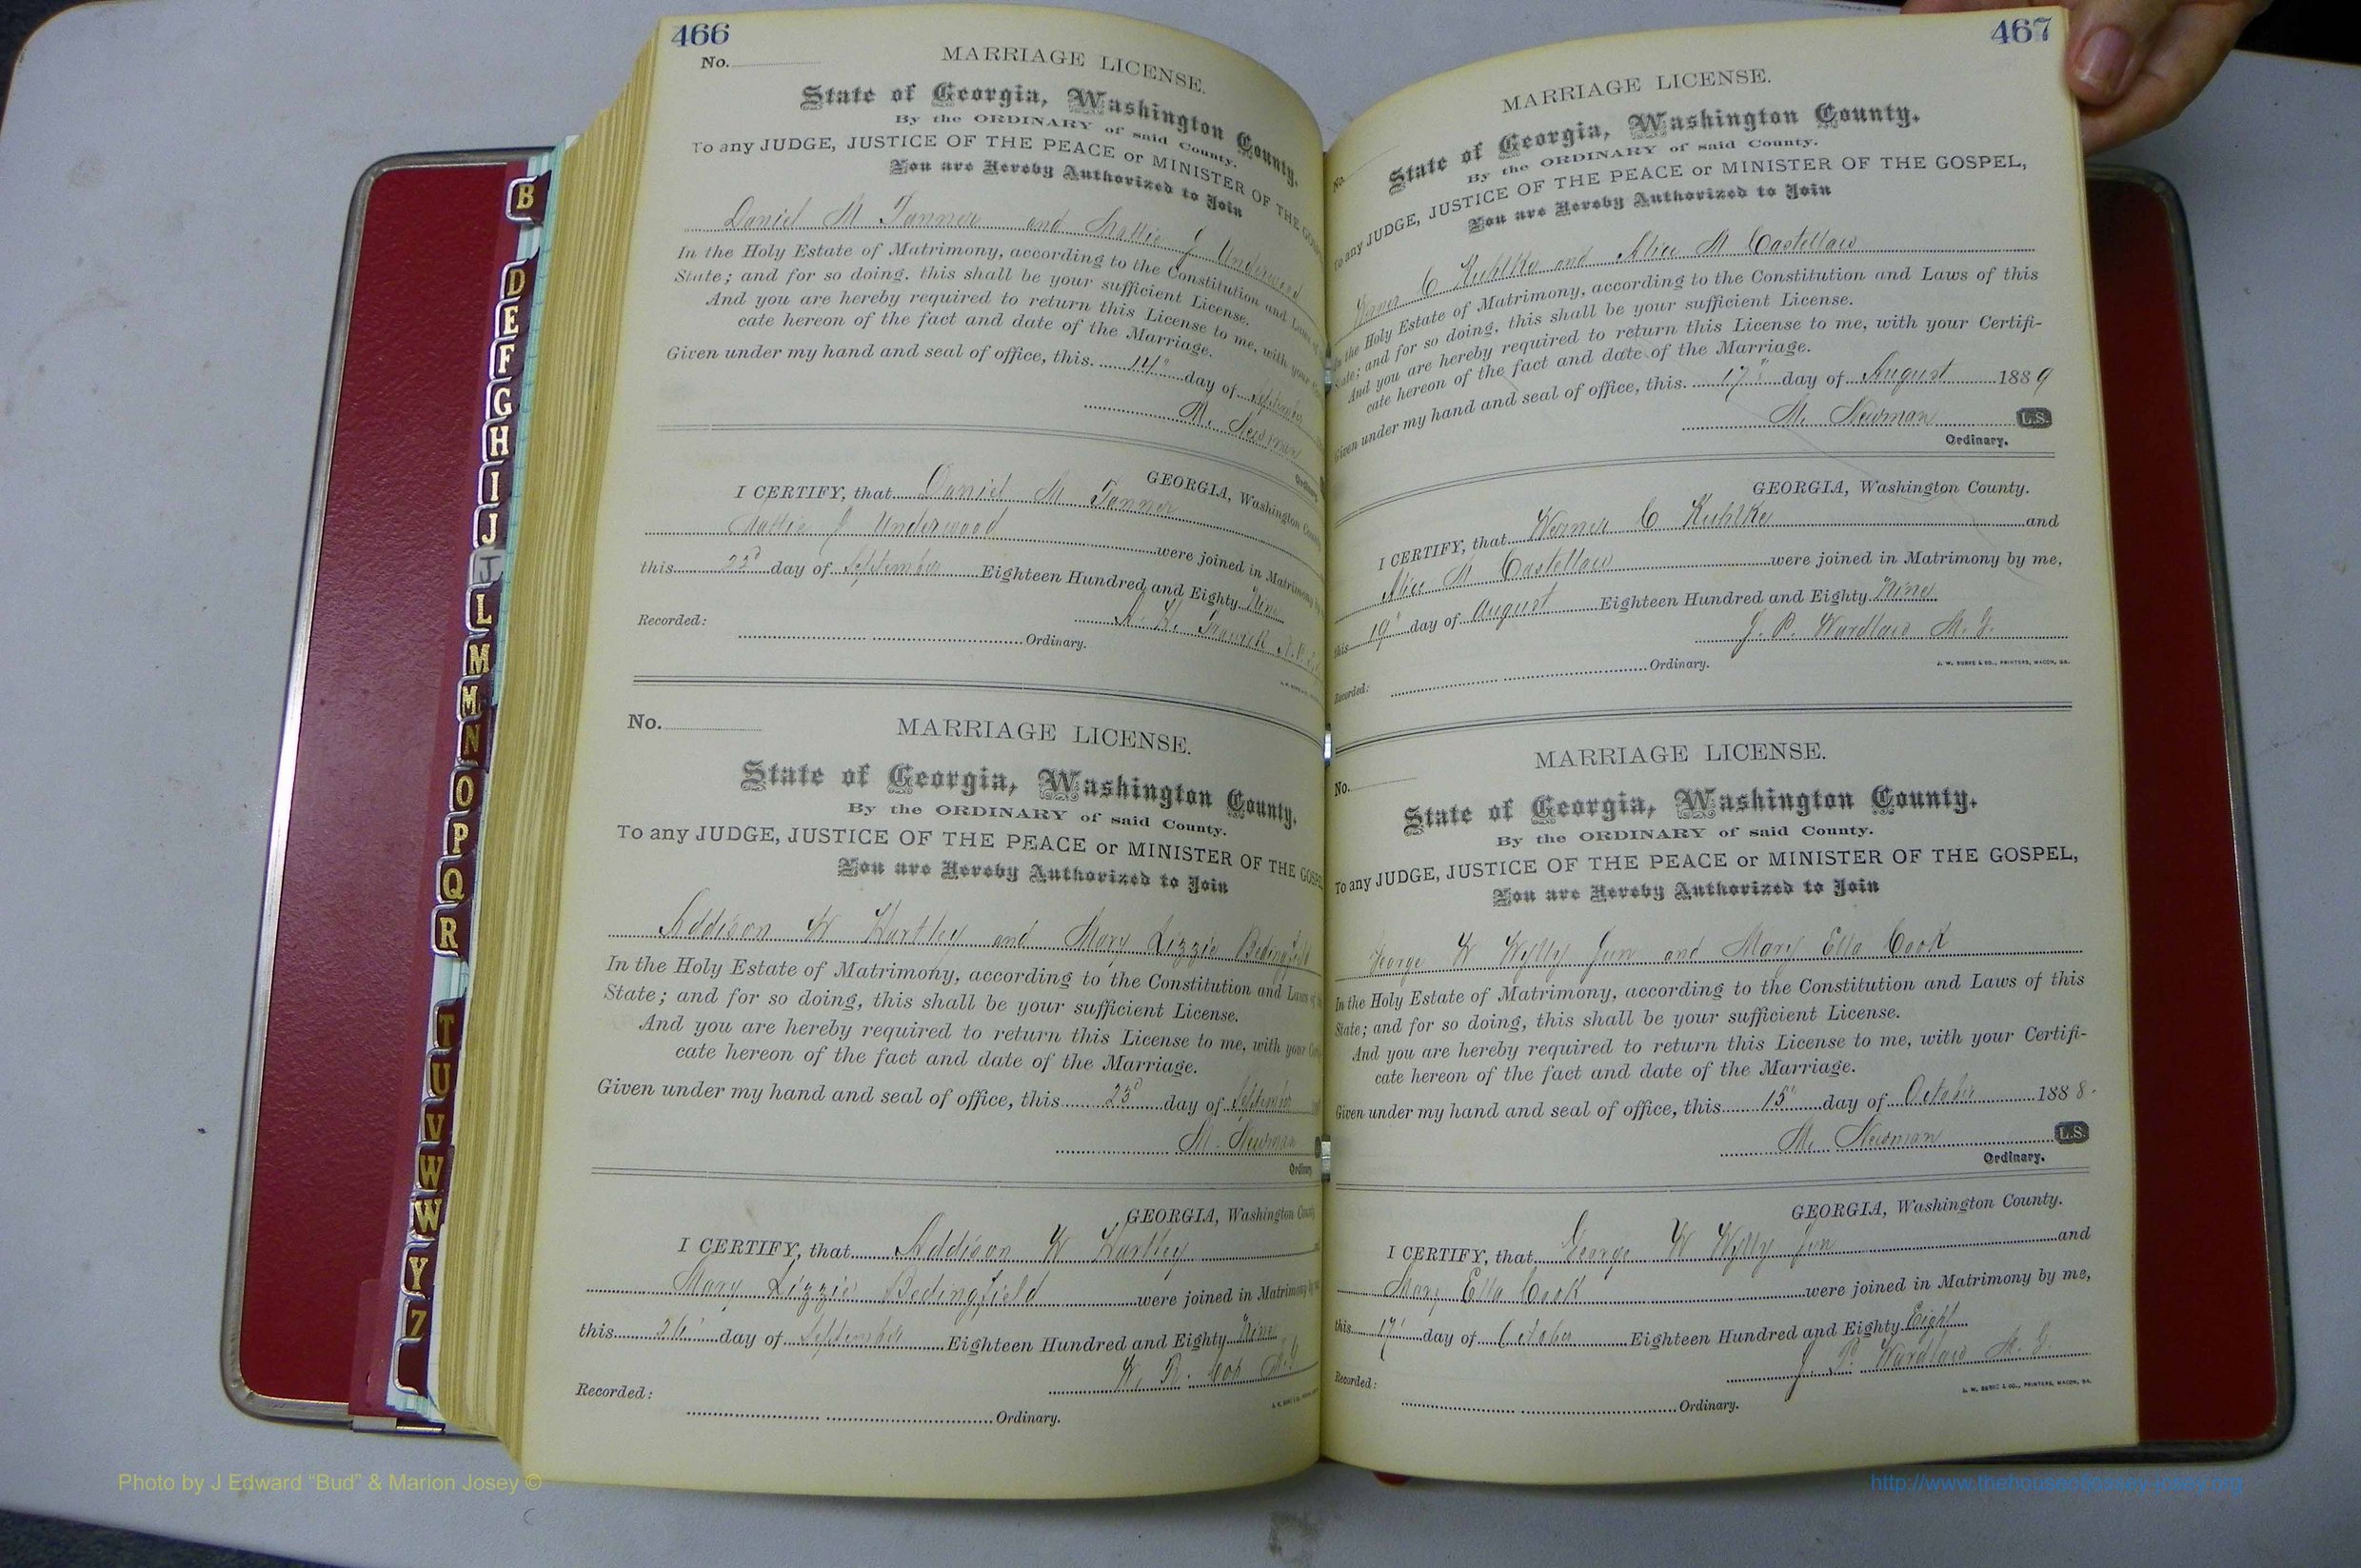 466
No.
MARRIAGE LICENSE.
State of Georgia, Washington County.
By the ORDINARY of said County.
To any JUDGE, JUSTICE OF THE PEACE or MINISTER OF THE
You are Hereby Authorized to Join
Daniel M Tanner and Mattie J Underwood
In the Holy Estate of Matrimony, according to the Constitution and Laws of
State; and for so doing, this shall be your sufficient License.
And you are hereby required to return this License to me, with your
cate hereon of the fact and date of the Marriage.
Given under my hand and seal of office, this 14" day of September
M. Newman
Ordinary
GEORGIA, Washington County
I CERTIFY, that Daniel M Tanner
Mattie J Underwood were joined in Matrimony
this 22d day of September Eighteen Hundred and Eighty Nine
Recorded:
Ordinary.
No.
MARRIAGE LICENSE.
State of Georgia, Washington County.
By the ORDINARY of said County.
To any JUDGE, JUSTICE OF THE PEACE or MINISTER OF THE GOSPEL
You are Hereby Authorized to Join
Addison W Hartley and Mary Lizzie Bedingfield
In the Holy Estate of Matrimony, according to the Constitution and Laws
State; and for so doing, this shall be your sufficient License.
And you are hereby required to return this License to me, with your
cate hereon of the fact and date of the Marriage.
Given under my hand and seal of office, this 23d day of September
M. Newman
Ordinary
GEORGIA, Washington County
I CERTIFY, that Addison W Hartley
Mary Lizzie Bedingfield were joined in Matrimony
this 26" day of September Eighteen Hundred and Eighty Nine
W. R.
Recorded:
Ordinary.
467
No.
MARRIAGE LICENSE.
State of Georgia, Washington County.
By the ORDINARY of said County.
To any JUDGE, JUSTICE OF THE PEACE or MINISTER OF THE GOSPEL,
You are Hereby Authorized to Join
Werner C Kuhlke and Alice M Castellaw
In the Holy Estate of Matrimony, according to the Constitution and Laws of this
State; and for so doing, this shall be your sufficient License.
And you are hereby required to return this License to me, with your Certifi-
cate hereon of the fact and date of the Marriage.
Given under my hand and seal of office, this 17" day of August 1889
M. Newman L.S.
Ordinary.
GEORGIA, Washington County.
I CERTIFY, that Werner C Kuhlke and
Alice M Castellaw were joined in Matrimony by me,
this 19" day of August Eighteen Hundred and Eighty Nine
J. P. Wardlaw M. G.
Recorded: Ordinary.
J. W. BURKE & CO., PRINTERS, MACON, GA.
No.
MARRIAGE LICENSE.
State of Georgia, Washington County.
By the ORDINARY of said County.
To any JUDGE, JUSTICE OF THE PEACE or MINISTER OF THE GOSPEL,
You are Hereby Authorized to Join
George W Wylly Jun and Mary Ella Cook
In the Holy Estate of Matrimony, according to the Constitution and Laws of this
State; and for so doing, this shall be your sufficient License.
And you are hereby required to return this License to me, with your Certifi-
cate hereon of the fact and date of the Marriage.
Given under my hand and seal of office, this 15" day of October 1888.
M. Newman L.S.
Ordinary.
GEORGIA, Washington County.
I CERTIFY, that George W Wylly Jun and
Mary Ella Cook were joined in Matrimony by me,
this 17" day of October Eighteen Hundred and Eighty Eight
J. P. Wardlaw M. G.
Recorded: Ordinary.
J. W. BURKE & CO., PRINTERS, MACON, GA.
B
D
E
F
G
H
I
J
J
L
M
M
N
O
P
Q
R
T
U
V
W
W
Y
Z
Photo by J Edward “Bud” & Marion Josey ©